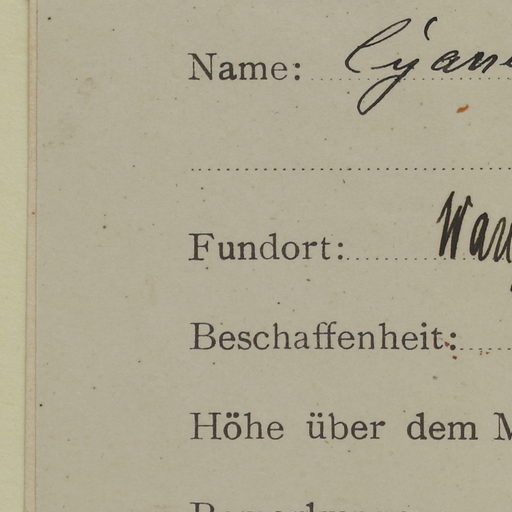 Name: Cyan
Fundort: War
Beschaffenheit:
Höhe über dem M